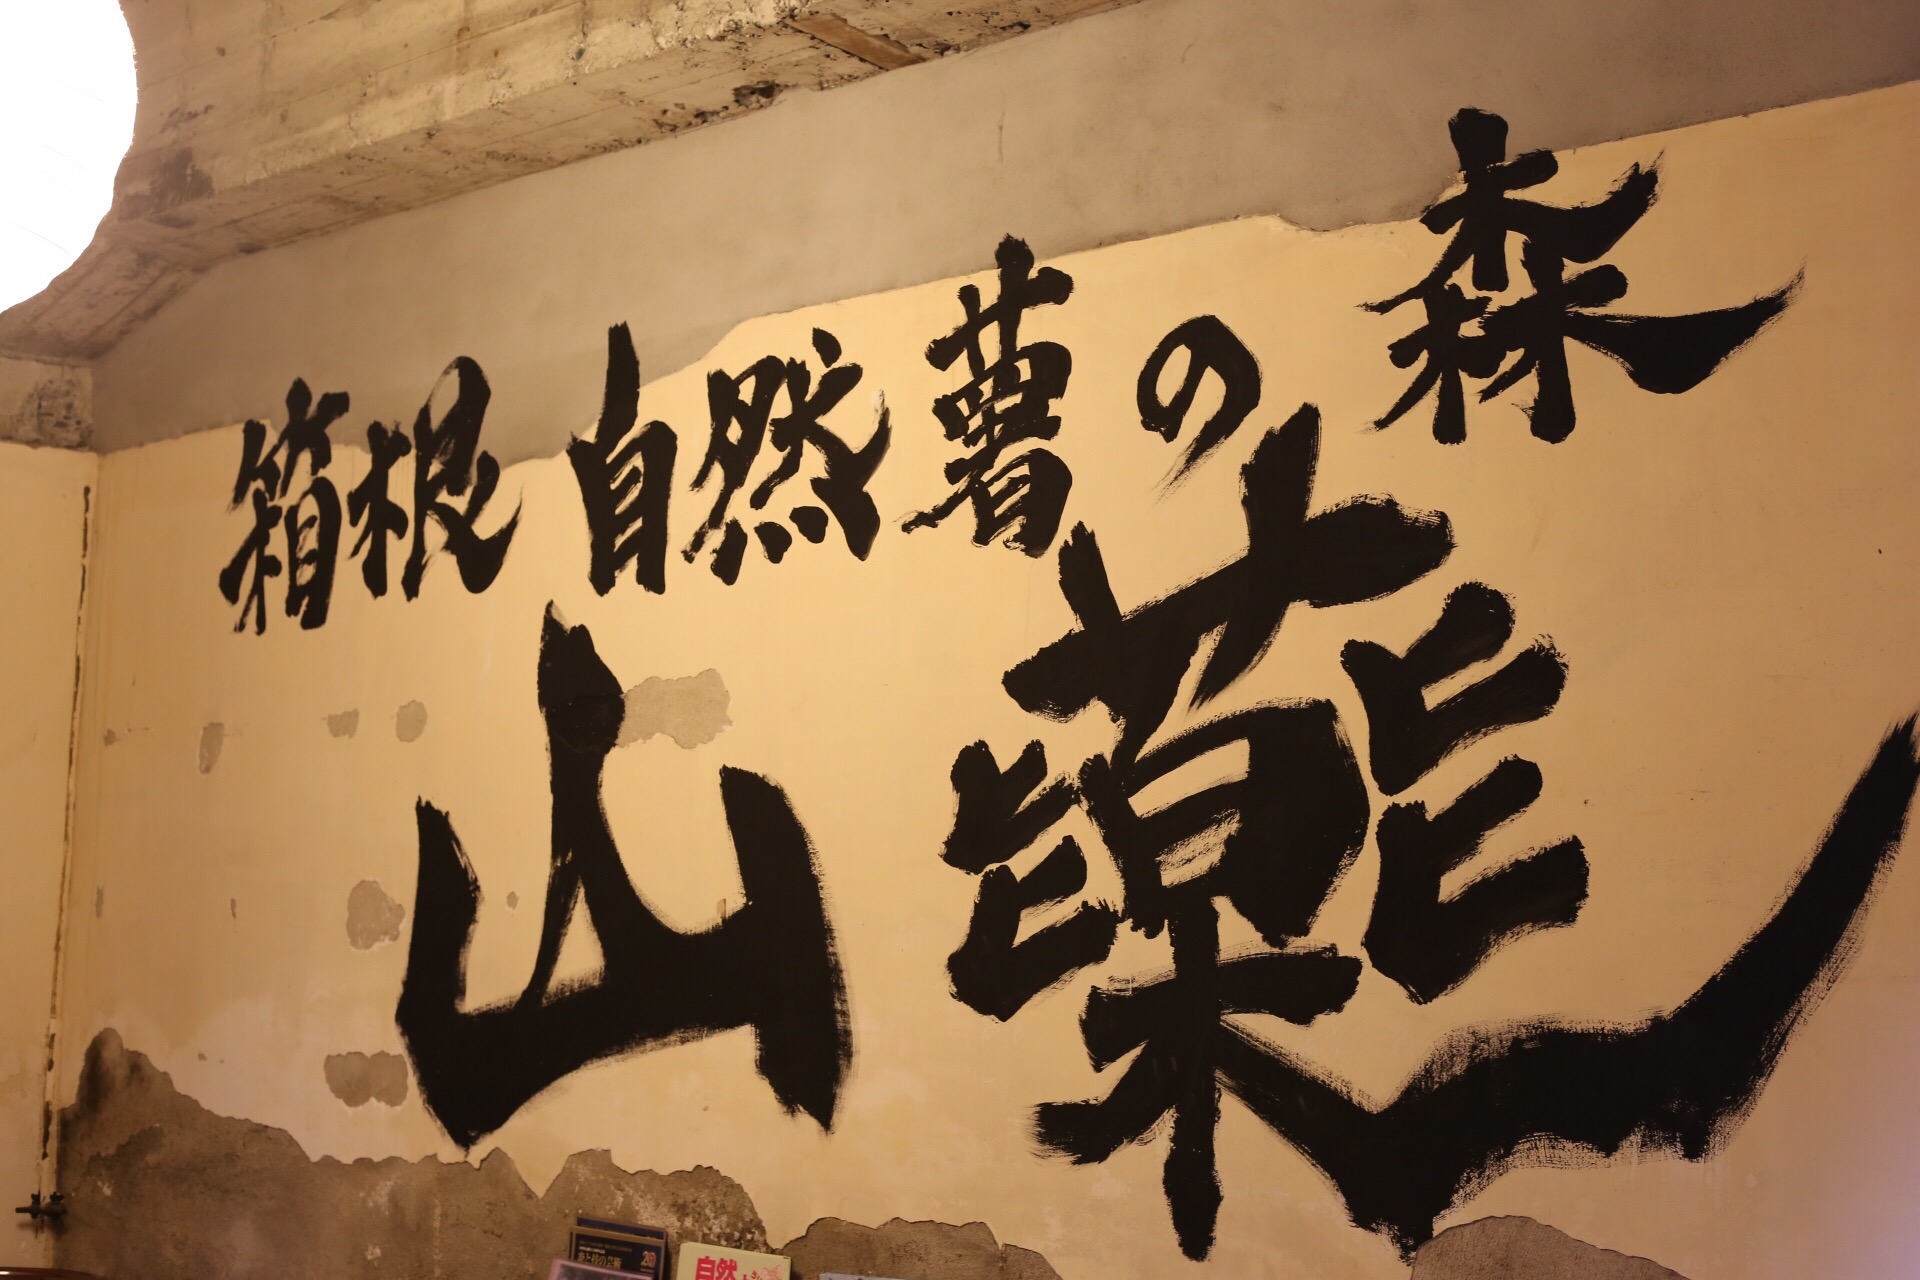 箱根自然薯の森
山薬
自然